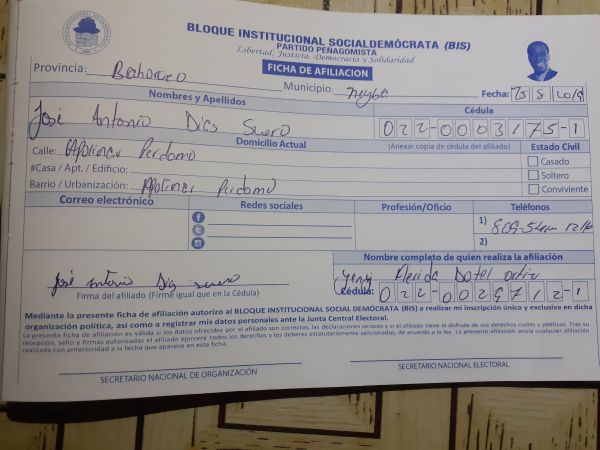 BLOQUE INSTITUCIONAL SOCIALDEMÓCRATA (BIS)
PARTIDO PEÑAGOMISTA
Libertad, Justicia, Democracia y Solidaridad
FICHA DE AFILIACION
Provincia: Bahoruco Municipio: Neyba Fecha: 25 8 2019
Nombres y Apellidos Cédula
José Antonio Dias Suero 022-0003175-1
Domicilio Actual (Anexar copia de cédula del afiliado) Estado Civil
Calle: Apolinar Perdomo Casado
#Casa / Apt. / Edificio: Soltero
Barrio / Urbanización: Apolinar Perdomo Conviviente
Correo electrónico Redes sociales Profesión/Oficio Teléfonos
1) 809-
2)
Nombre completo de quien realiza la afiliación
Merida Dotel
José Antonio Dias Suero
Firma del afiliado (Firme igual que en la Cédula) Cédula: 022-0029712-1
Mediante la presente ficha de afiliación autorizo al BLOQUE INSTITUCIONAL SOCIAL DEMÓCRATA (BIS) a realizar mi inscripción única y exclusiva en dicha
organización política, así como a registrar mis datos personales ante la Junta Central Electoral.
La presente ficha de afiliación es válida si los datos ofrecidos por el afiliado son correctos, las declaraciones veraces y si el afiliado tiene el disfrute de sus derechos civiles y políticos. Tras su
recepción, sello y firmas autorizadas el afiliado ejercerá todos los derechos y los deberes estatutariamente sancionados, de acuerdo a la ley. La presente afiliación anula cualquier afiliación
realizada con anterioridad a la fecha que aparece en esta ficha.
SECRETARIO NACIONAL DE ORGANIZACIÓN SECRETARIO NACIONAL ELECTORAL